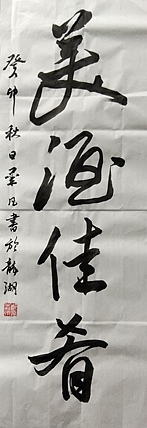 美酒佳肴
癸卯秋日華凡書於靜湖